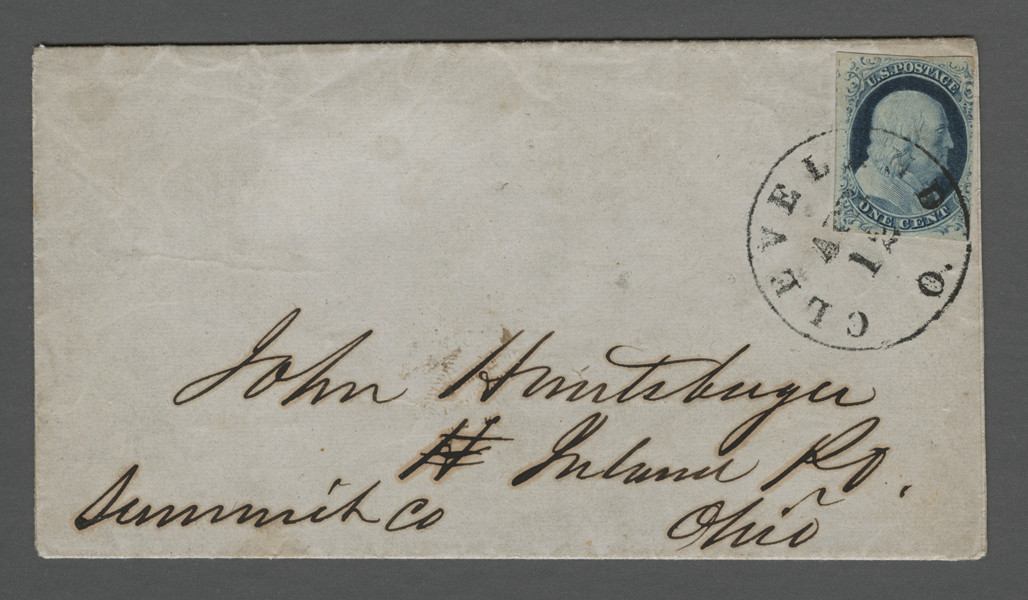 U.S. POSTAGE
ONE CENT
CLEVELAND O.
12
John Huntsburger
Inland Po.
Summit Co
Ohio